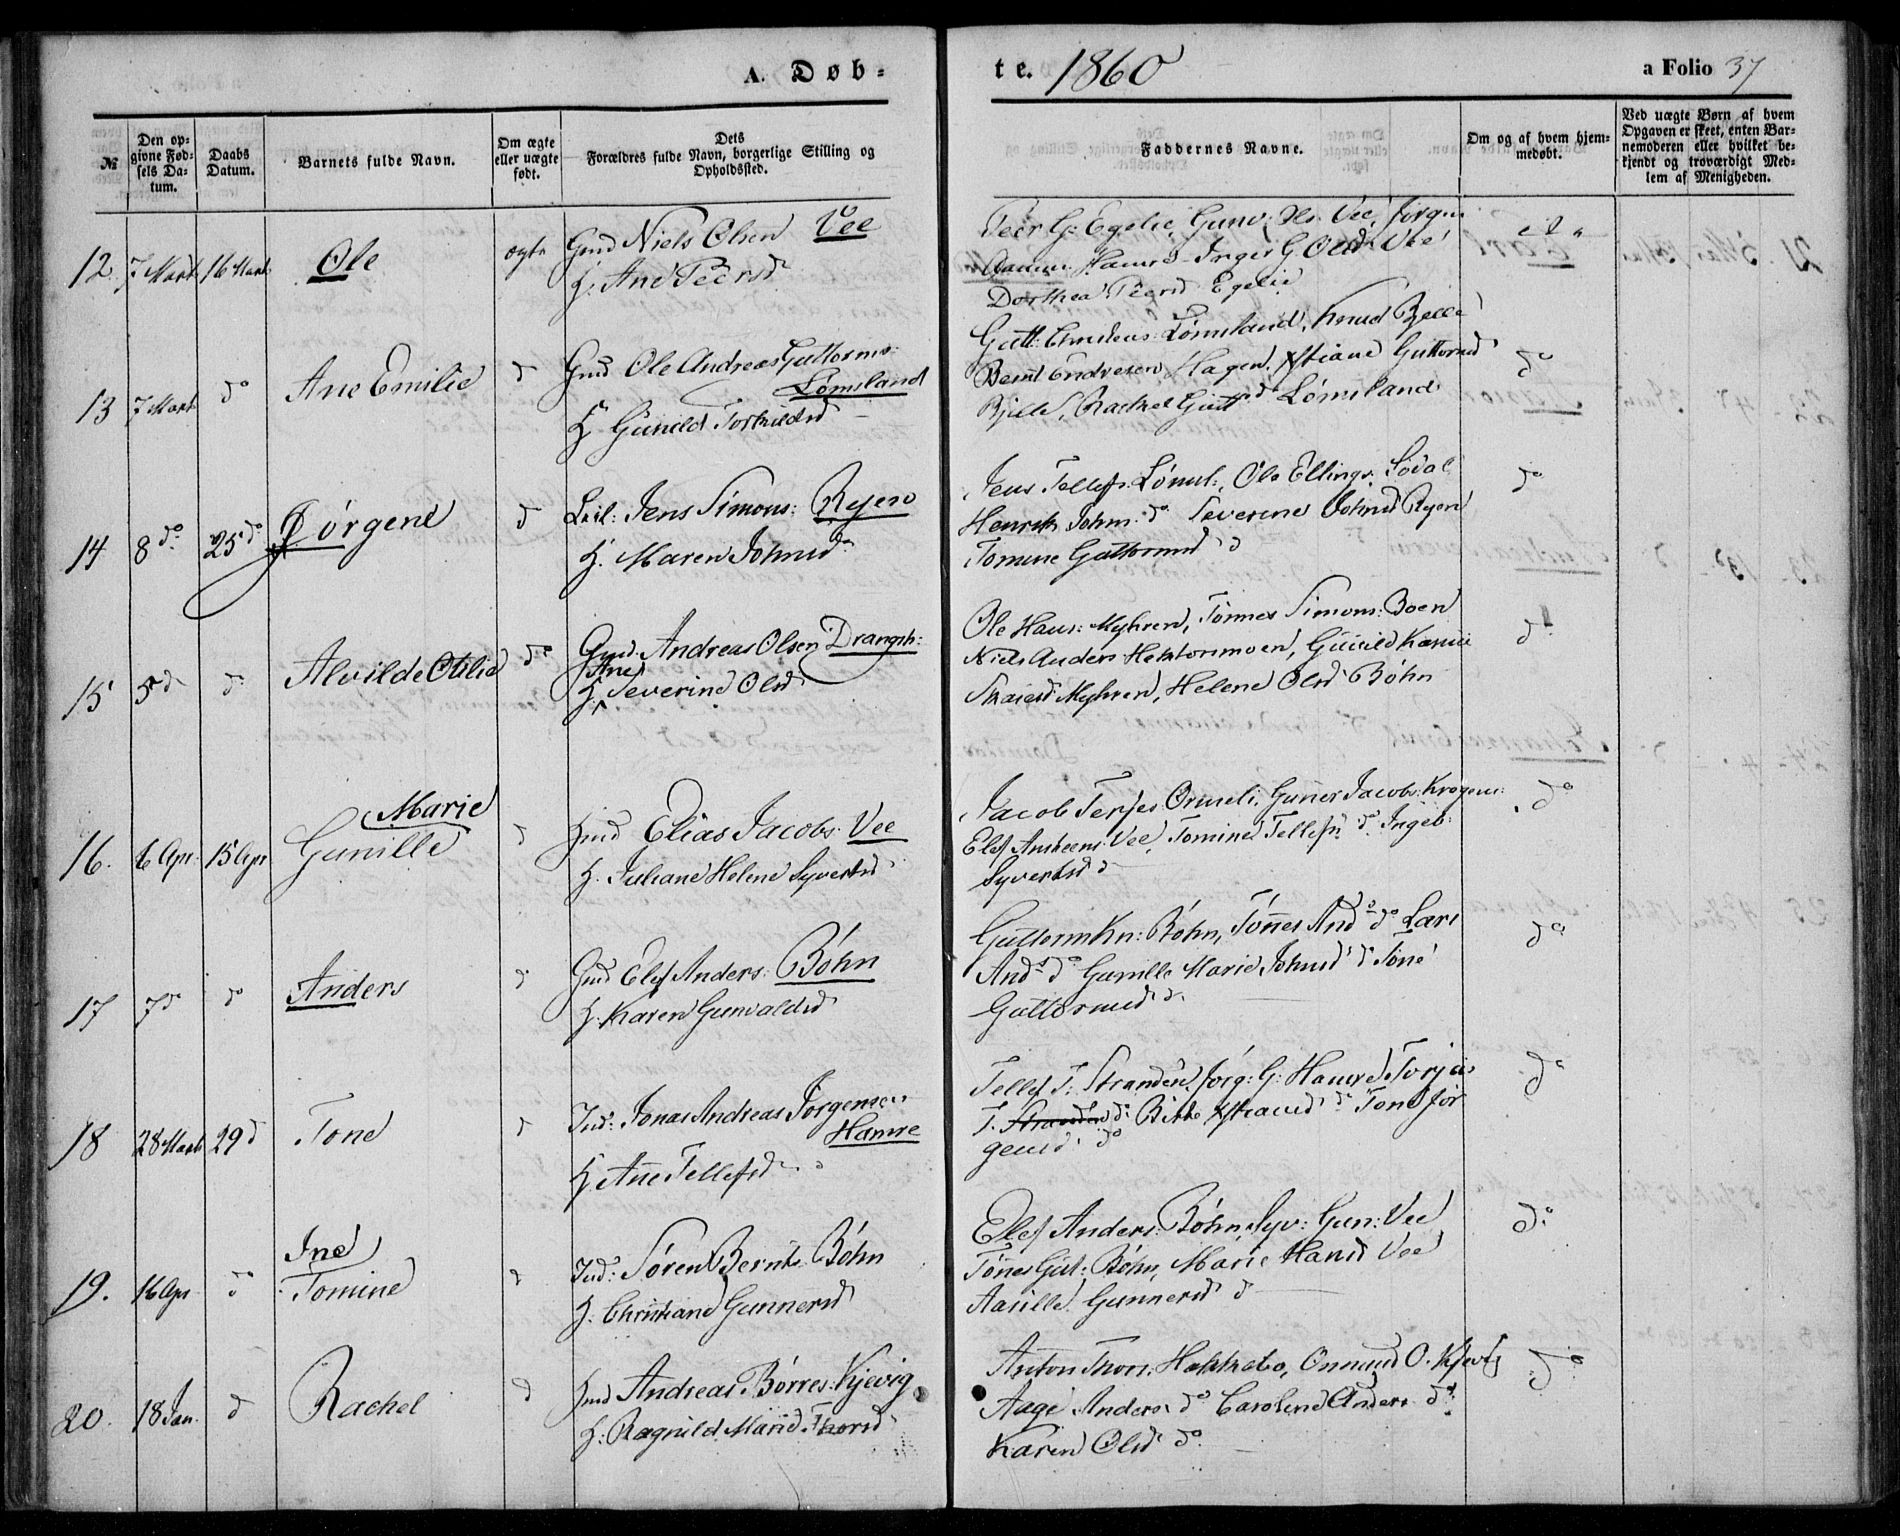 A. Døb-
te. 1860
a Folio 37
№
Den op-
givne Fød-
sels Da-
tum.
Daabs
Datum.
Barnets fulde Navn.
Om ægte
eller uægte
født.
Dets
Forældres fulde Navn, borgerlige Stilling og
Opholdssted.
Faddernes Navne.
Om og af hvem hjem-
medøbt.
Ved uægte Børn af hvem
Opgaven er skeet, enten Bar-
nemoderen eller hvilket be-
kjendt og troværdigt Med-
lem af Menigheden.
12. 7 Marts 16 Marts Ole ægte Gmd Niels Olsen Vee
H. Ane Peersd
Peer G: Egelie, Gunv: Ols: Vee, Jørgen
Hamre Inger G Olsd Vee
Dorthea Peersd Egelie
13 7 Marts do Ane Emilie d Gmd Ole Andreas Guttorms:
Lømsland
H Gunild Torkildsd
Gutt: Christens: Lømsland, Knud Bjelle
Bernt Endresen Hagen, Xstiane Guttormsd do
Bjelle, Rachel Guttd Lømsland
14 8 do 25 do Jørgene d Leil: Jens Simons: Ryen
H. Maren Johnsd
Jens Tellefs: Lømsl:, Ole Ellings: Sødal do
Henrik Johns: do Severine Johnsd Ryen
Tomine Guttormsd d
15 5 d d Alvilde Otilie do Gmd: Andreas Olsen Drangsh:
Ane
H. Severine Olsd
Ole Hans: Myhren, Tønnes Simons: Boen
Niels Anders: Hektormoen, Gunild Karine do
Myhren, Helene Olsd Bøhn
16. 6 Apr. 15 Apr Marie
Gunille d Hmd Elias Jacobs: Vee
H. Juliane Helene Syvertsd
Jacob Terjes: Ormeli, Gunner Jacobs: Krogem: do
Elef Ansteens: Vee, Tomine Tellefsd d. Ingeb:
Syvertsd d
17 7 d do Anders d Gmd Elef Anders: Bøhn
H. Karen Gunvaldsd
Guttorm Kn: Bøhn, Tønnes Ands do Lars do
Ands do Gunille Marie Johnsd d Tone
Guttormsd d.
18 28 Marts 29 d Tone d Ind: Jonas Andreas Jørgensen
Hamre
H. Ane Tellefsd
Tellef T: Stranden, Jørg: G: Hamre, Torjus do
T. Stranden do Birte Xstiansd do Tone Jør
gensd do
19. 16 Apr do Ine
Tomine d Ind: Søren Bernts: Bøhn
H. Christiane Gunnersd
Elef Anders: Bøhn, Syv: Gun: Vee do
Tønes Gut: Bøhn, Marie Hansd Vee
Aasille Gunnersd d
20. 18 Jan. d Rachel d Hmd Andreas Børres: Kjevig
H: Ragnild Marie Thorsd
Anton Thors: Hakkebo, Onnund O. Kjevig do
Aage Anders: do Caroline Anders: do
Karen Olsd do